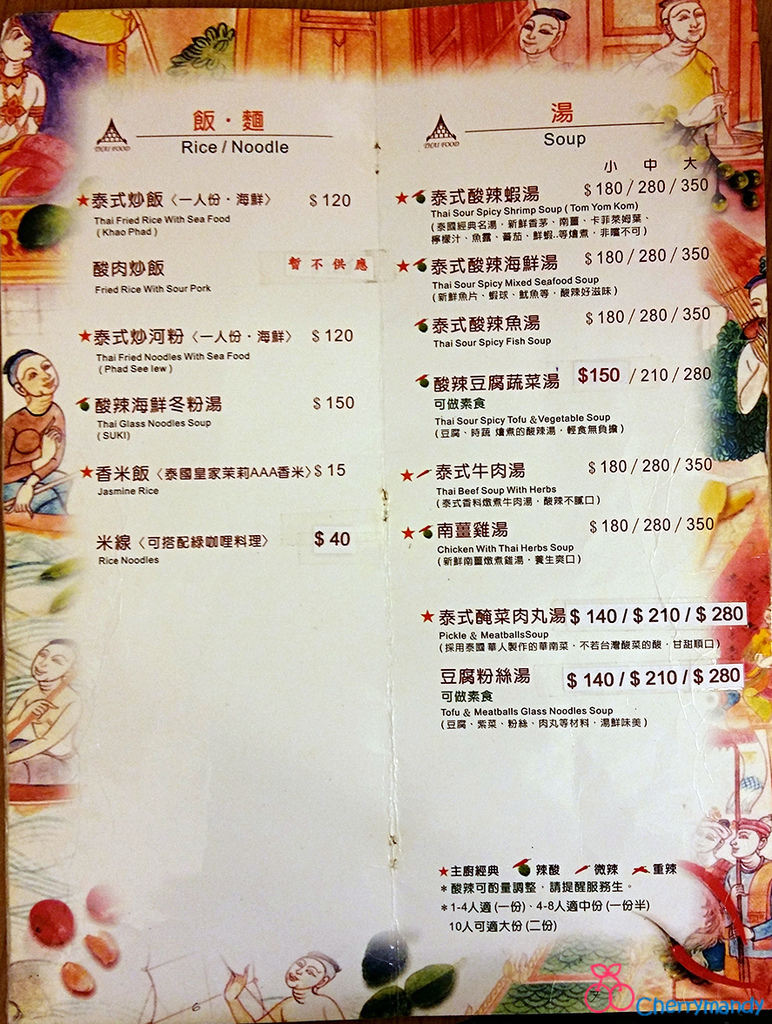 飯・麵
THAI FOOD
Rice / Noodle
★泰式炒飯〈一人份・海鮮〉 $120
Thai Fried Rice With Sea Food
( Khao Phad )
酸肉炒飯 暫不供應
Fried Rice With Sour Pork
★泰式炒河粉〈一人份・海鮮〉 $120
Thai Fried Noodles With Sea Food
( Phad See Iew )
酸辣海鮮冬粉湯 $150
Thai Glass Noodles Soup
( SUKI )
★香米飯〈泰國皇家茉莉AAA香米〉$15
Jasmine Rice
米線〈可搭配綠咖哩料理〉 $40
Rice Noodles
6
湯
THAI FOOD
Soup
小 中 大
★泰式酸辣蝦湯 $180/280/350
Thai Sour Spicy Shrimp Soup ( Tom Yom Kom )
(泰國經典名湯，新鮮香茅、南薑、卡菲萊姆葉、
檸檬汁、魚露、蕃茄、鮮蝦..等燴煮，非嚐不可)
★泰式酸辣海鮮湯 $180/280/350
Thai Sour Spicy Mixed Seafood Soup
(新鮮魚片、蝦球、魷魚等，酸辣好滋味)
泰式酸辣魚湯 $180/280/350
Thai Sour Spicy Fish Soup
酸辣豆腐蔬菜湯 $150 /210/280
可做素食
Thai Sour Spicy Tofu & Vegetable Soup
(豆腐、時蔬 燴煮的酸辣湯，輕食無負擔)
★泰式牛肉湯 $180/280/350
Thai Beef Soup With Herbs
(泰式香料燉煮牛肉湯，酸辣不膩口)
★南薑雞湯 $180/280/350
Chicken With Thai Herbs Soup
(新鮮南薑燉煮雞湯，養生爽口)
★泰式醃菜肉丸湯 $140/$210/$280
Pickle & MeatballsSoup
(採用泰國華人製作的華南菜，不若台灣酸菜的酸，甘甜順口)
豆腐粉絲湯 $140/$210/$280
可做素食
Tofu & Meatballs Glass Noodles Soup
(豆腐、紫菜、粉絲、肉丸等材料，湯鮮味美)
★主廚經典 辣酸 微辣 重辣
＊酸辣可酌量調整，請提醒服務生。
＊1-4人適(一份)、4-8人適中份(一份半)
10人可適大份(二份)
Cherrymandy